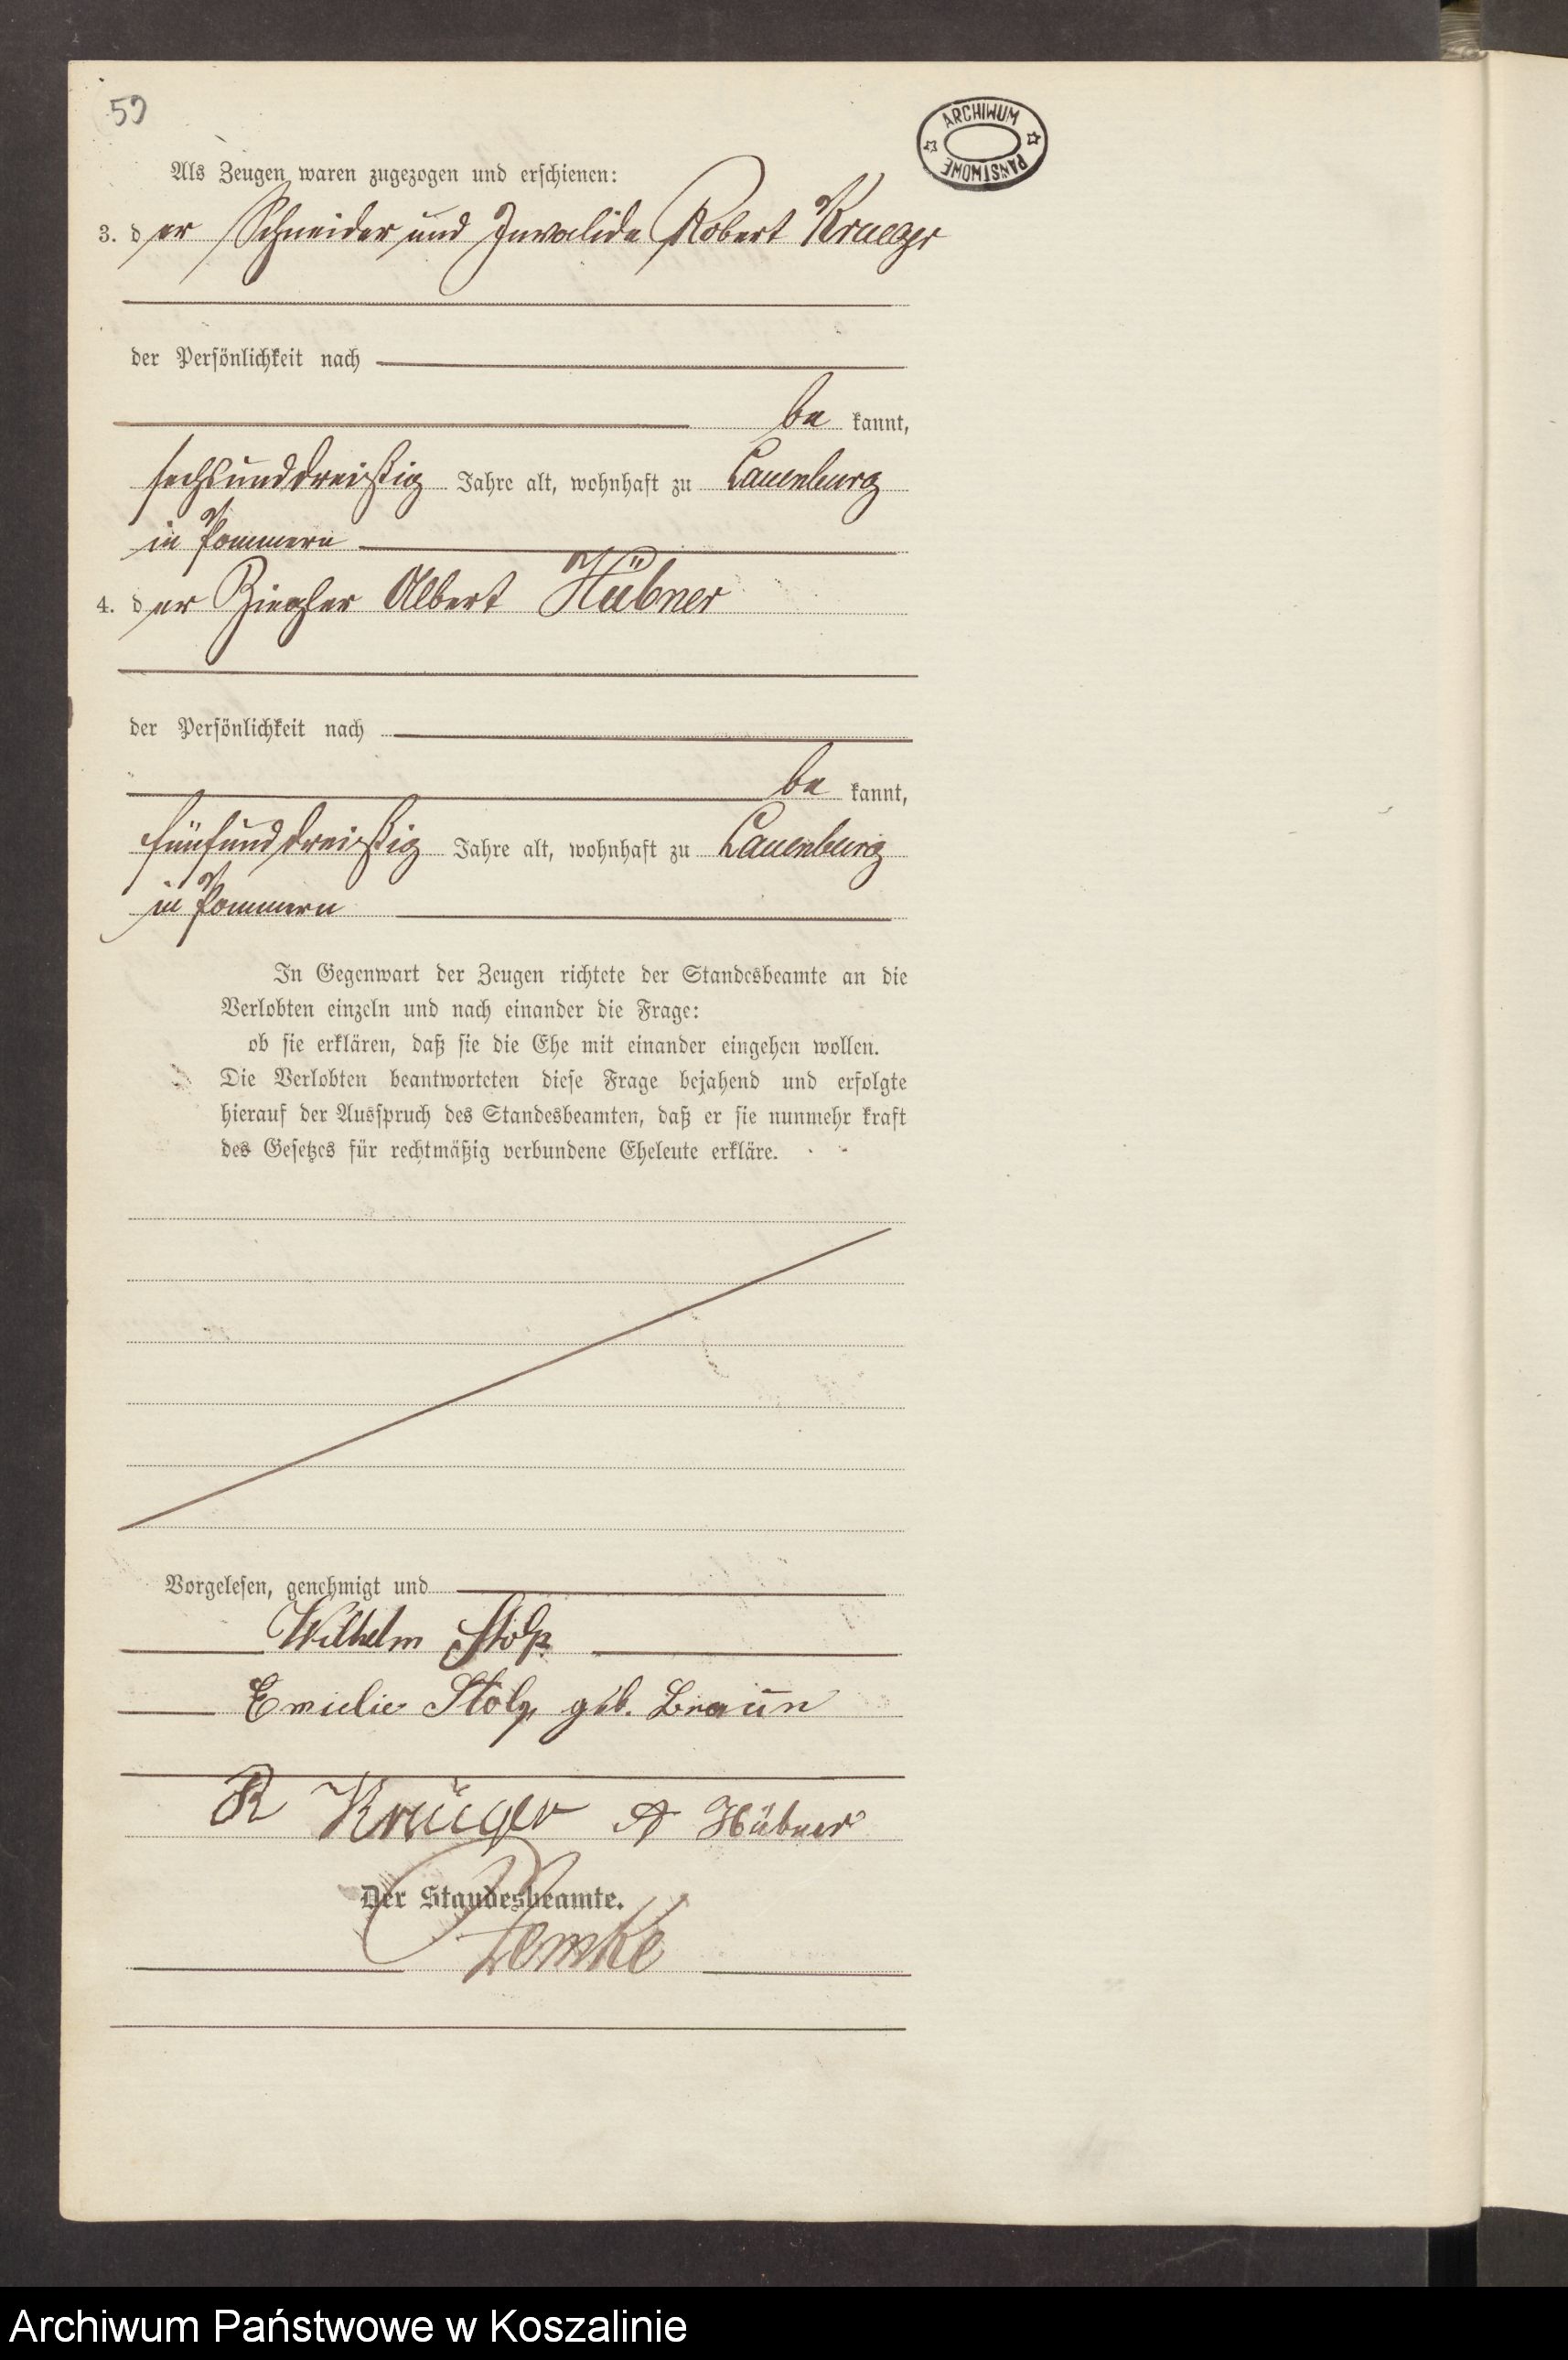 59
ARCHIWUM PAŃSTWOWE
Als Zeugen waren zugezogen und erschienen:
3. der Schneider und Invalide Robert Krueger
der Persönlichkeit nach
be kannt,
sechsunddreißig Jahre alt, wohnhaft zu Lauenburg
in Pommern
4. der Ziegler Albert Hübner
der Persönlichkeit nach
be kannt,
fünfunddreißig Jahre alt, wohnhaft zu Lauenburg
in Pommern
In Gegenwart der Zeugen richtete der Standesbeamte an die
Verlobten einzeln und nach einander die Frage:
ob sie erklären, daß sie die Ehe mit einander eingehen wollen.
Die Verlobten beantworteten diese Frage bejahend und erfolgte
hierauf der Ausspruch des Standesbeamten, daß er sie nunmehr kraft
des Gesetzes für rechtmäßig verbundene Eheleute erkläre.
Vorgelesen, genehmigt und
Wilhelm Stolp
Emilie Stolp, geb. Braun
R Krüger A Hübner
Der Standesbeamte.
Archiwum Państwowe w Koszalinie